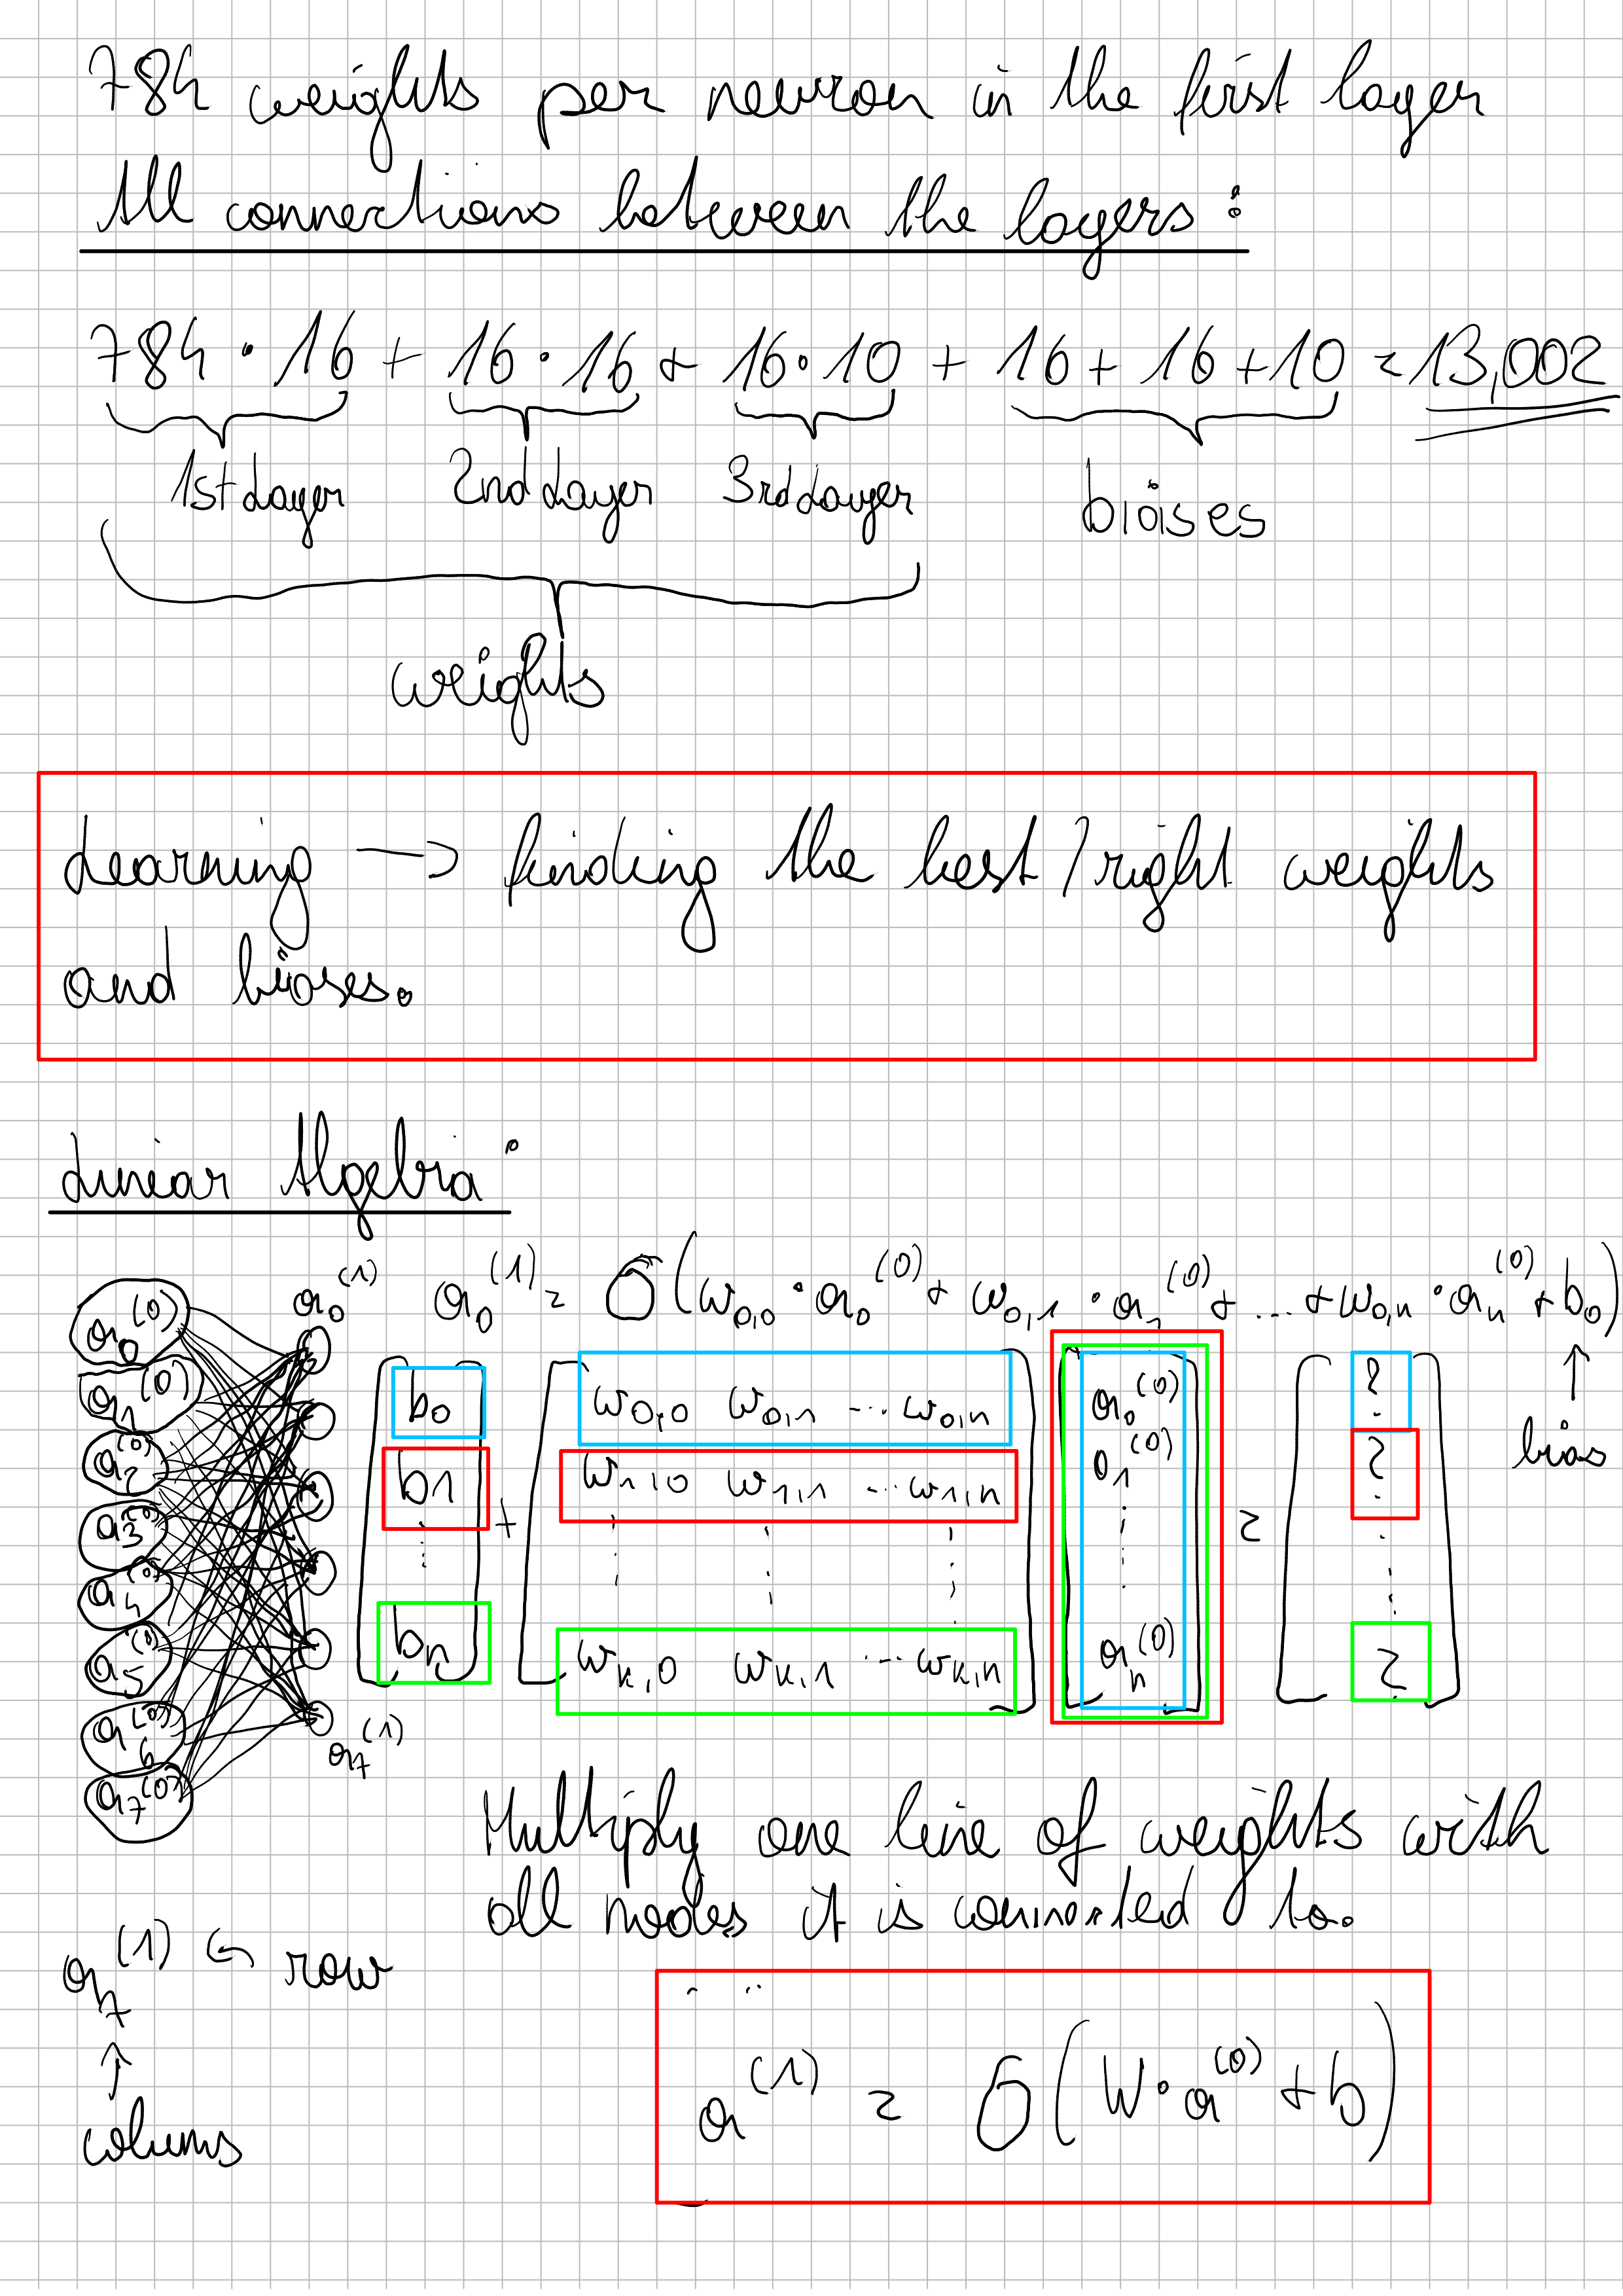 784 weights per neuron in the first layer
All connections between the layers:
784 · 16 + 16 · 16 + 16 · 10 + 16 + 16 + 10 = 13,002
1st Layer 2nd Layer 3rd Layer biases
weights
Learning → finding the best / right weights
and biases.
Linear Algebra:
a₀⁽⁰⁾ a₀⁽¹⁾ a₀⁽¹⁾ = σ(w₀,₀ · a₀⁽⁰⁾ + w₀,₁ · a₁⁽⁰⁾ + ... + w₀,ₙ · aₙ⁽⁰⁾ + b₀)
a₁⁽⁰⁾ b₀ w₀,₀ w₀,₁ ... w₀,ₙ a₀⁽⁰⁾ ? ↑
a₂⁽⁰⁾ b₁ + w₁,₀ w₁,₁ ... w₁,ₙ a₁⁽⁰⁾ = ? bias
a₃⁽⁰⁾ ⋮ ⋮ ⋮ ⋮ ⋮ ⋮
a₄⁽⁰⁾
a₅⁽⁰⁾ bₙ wₖ,₀ wₖ,₁ ... wₖ,ₙ aₙ⁽⁰⁾ ?
a₆⁽⁰⁾ a₇⁽¹⁾
a₇⁽⁰⁾
Multiply one line of weights with
all nodes it is connected to.
a₇⁽¹⁾ ← row
↑
colums
a⁽¹⁾ = σ(W · a⁽⁰⁾ + b)